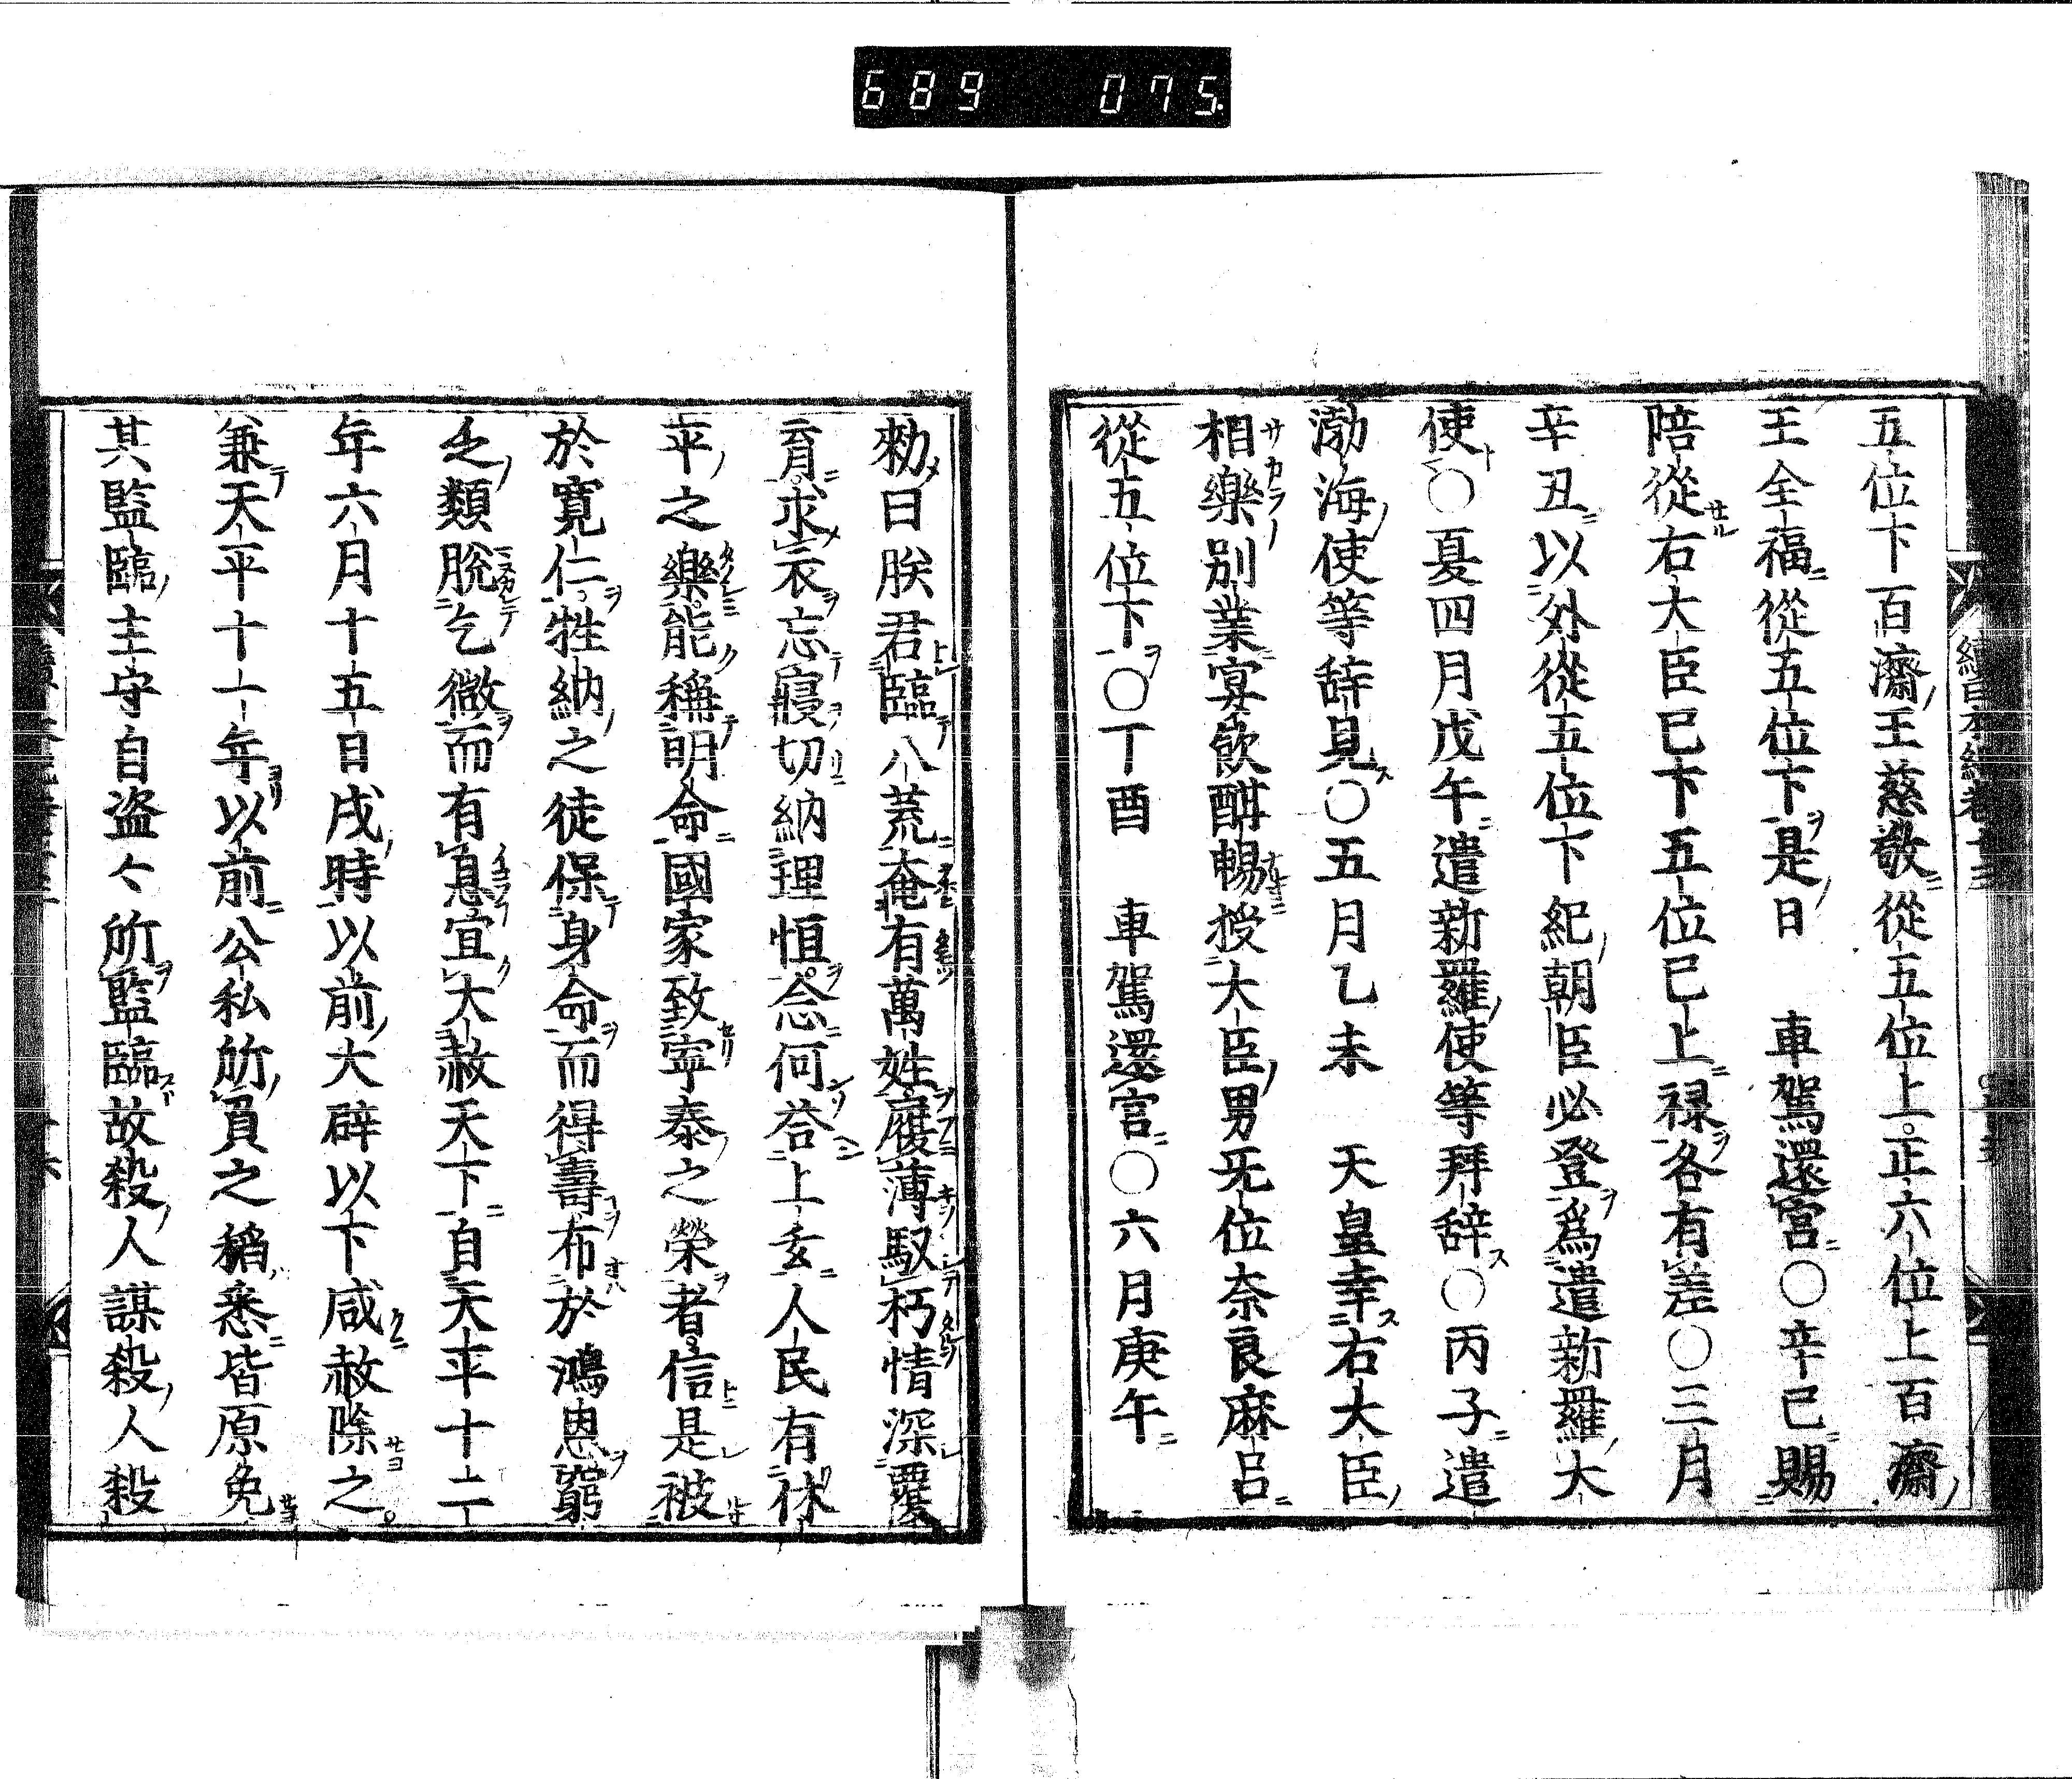 689 075.
五位下百濟王慈敬從五位上正六位上百濟
王全福從五位下是日 車駕還宮○辛巳賜
陪從右大臣已下五位已上祿各有差○三月
辛丑以外從五位下紀朝臣必登爲遣新羅大
使○夏四月戊午遣新羅使等拜辞○丙子遣
渤海使等辞見○五月乙未 天皇幸右大臣
相樂別業宴飲酣暢授大臣男无位奈良麻呂
從五位下○丁酉 車駕還宮○六月庚午
勑曰朕君臨八荒奄有萬姓履薄馭朽情深覆
育求衣忘寢切納理恒念何荅上玄人民有休
平之樂能稱明命國家致寧泰之榮者信是被
於寛仁牲納之徒保身命而得壽布於鴻恩窮
乏類脫乞微而有息宜大赦天下自天平十二
年六月十五日戌時以前大辟以下咸赦除之
兼天平十一年以前公私所負之稻悉皆原免
其監臨主守自盗々所監臨故殺人謀殺人殺